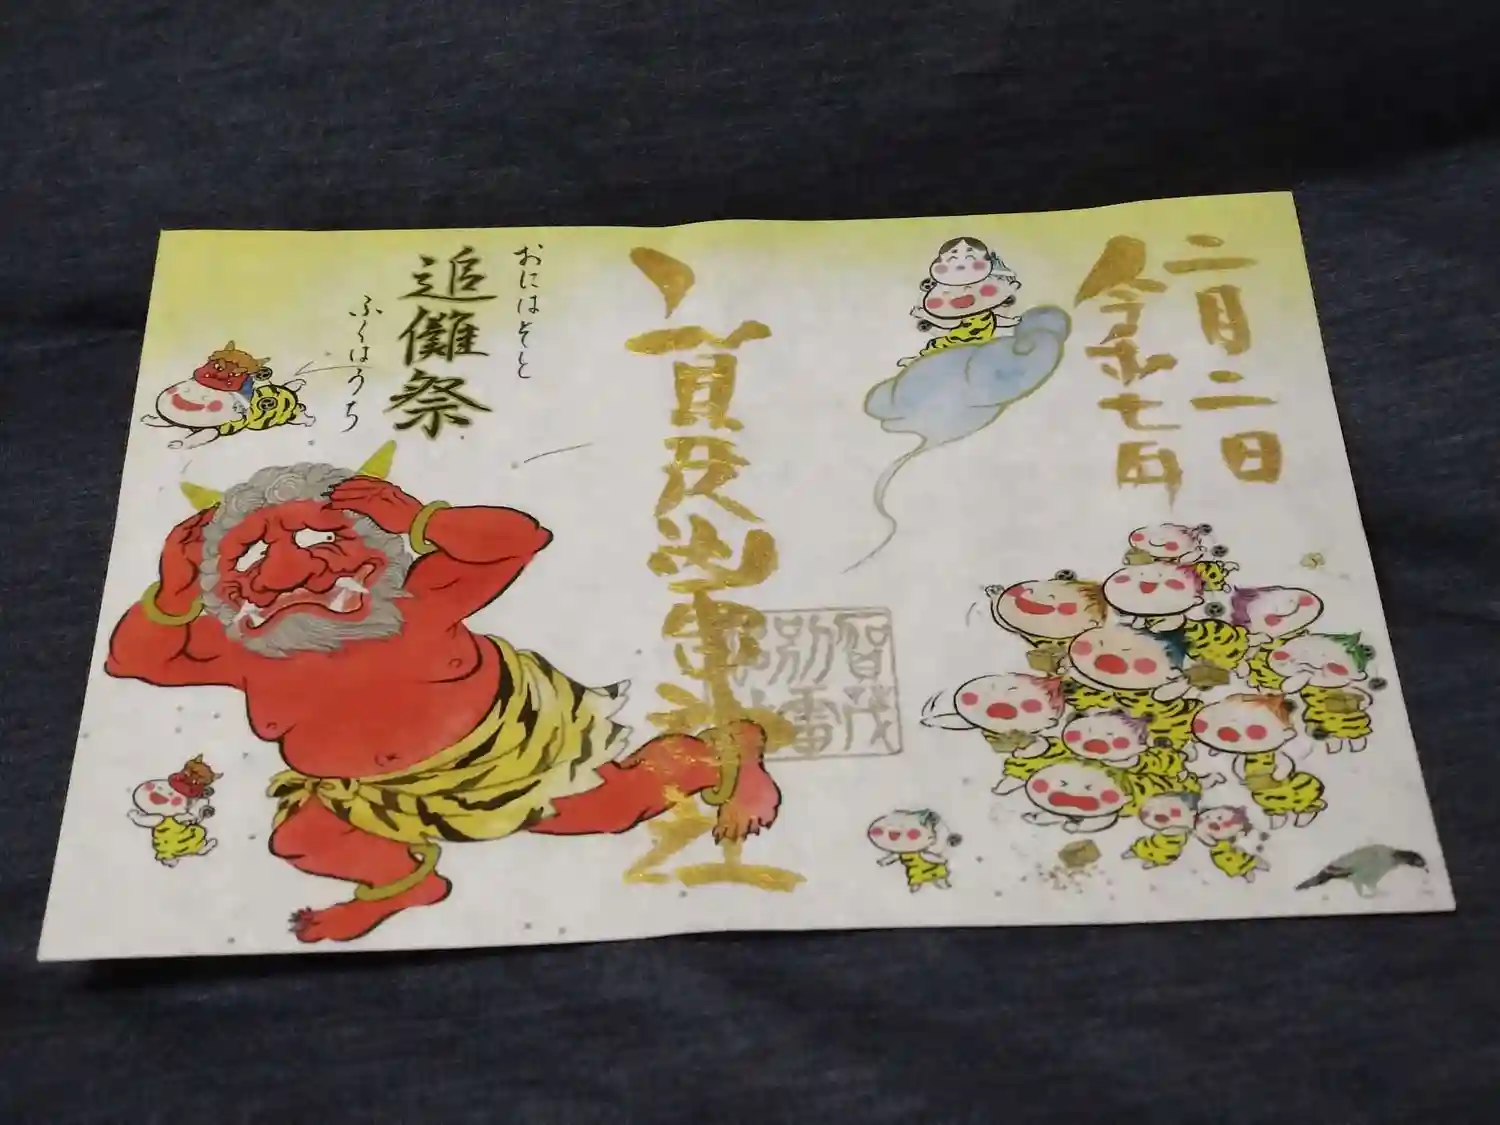 二月二日
令和七年
賀茂
別雷
おにはそと
追儺祭
ふくはうち